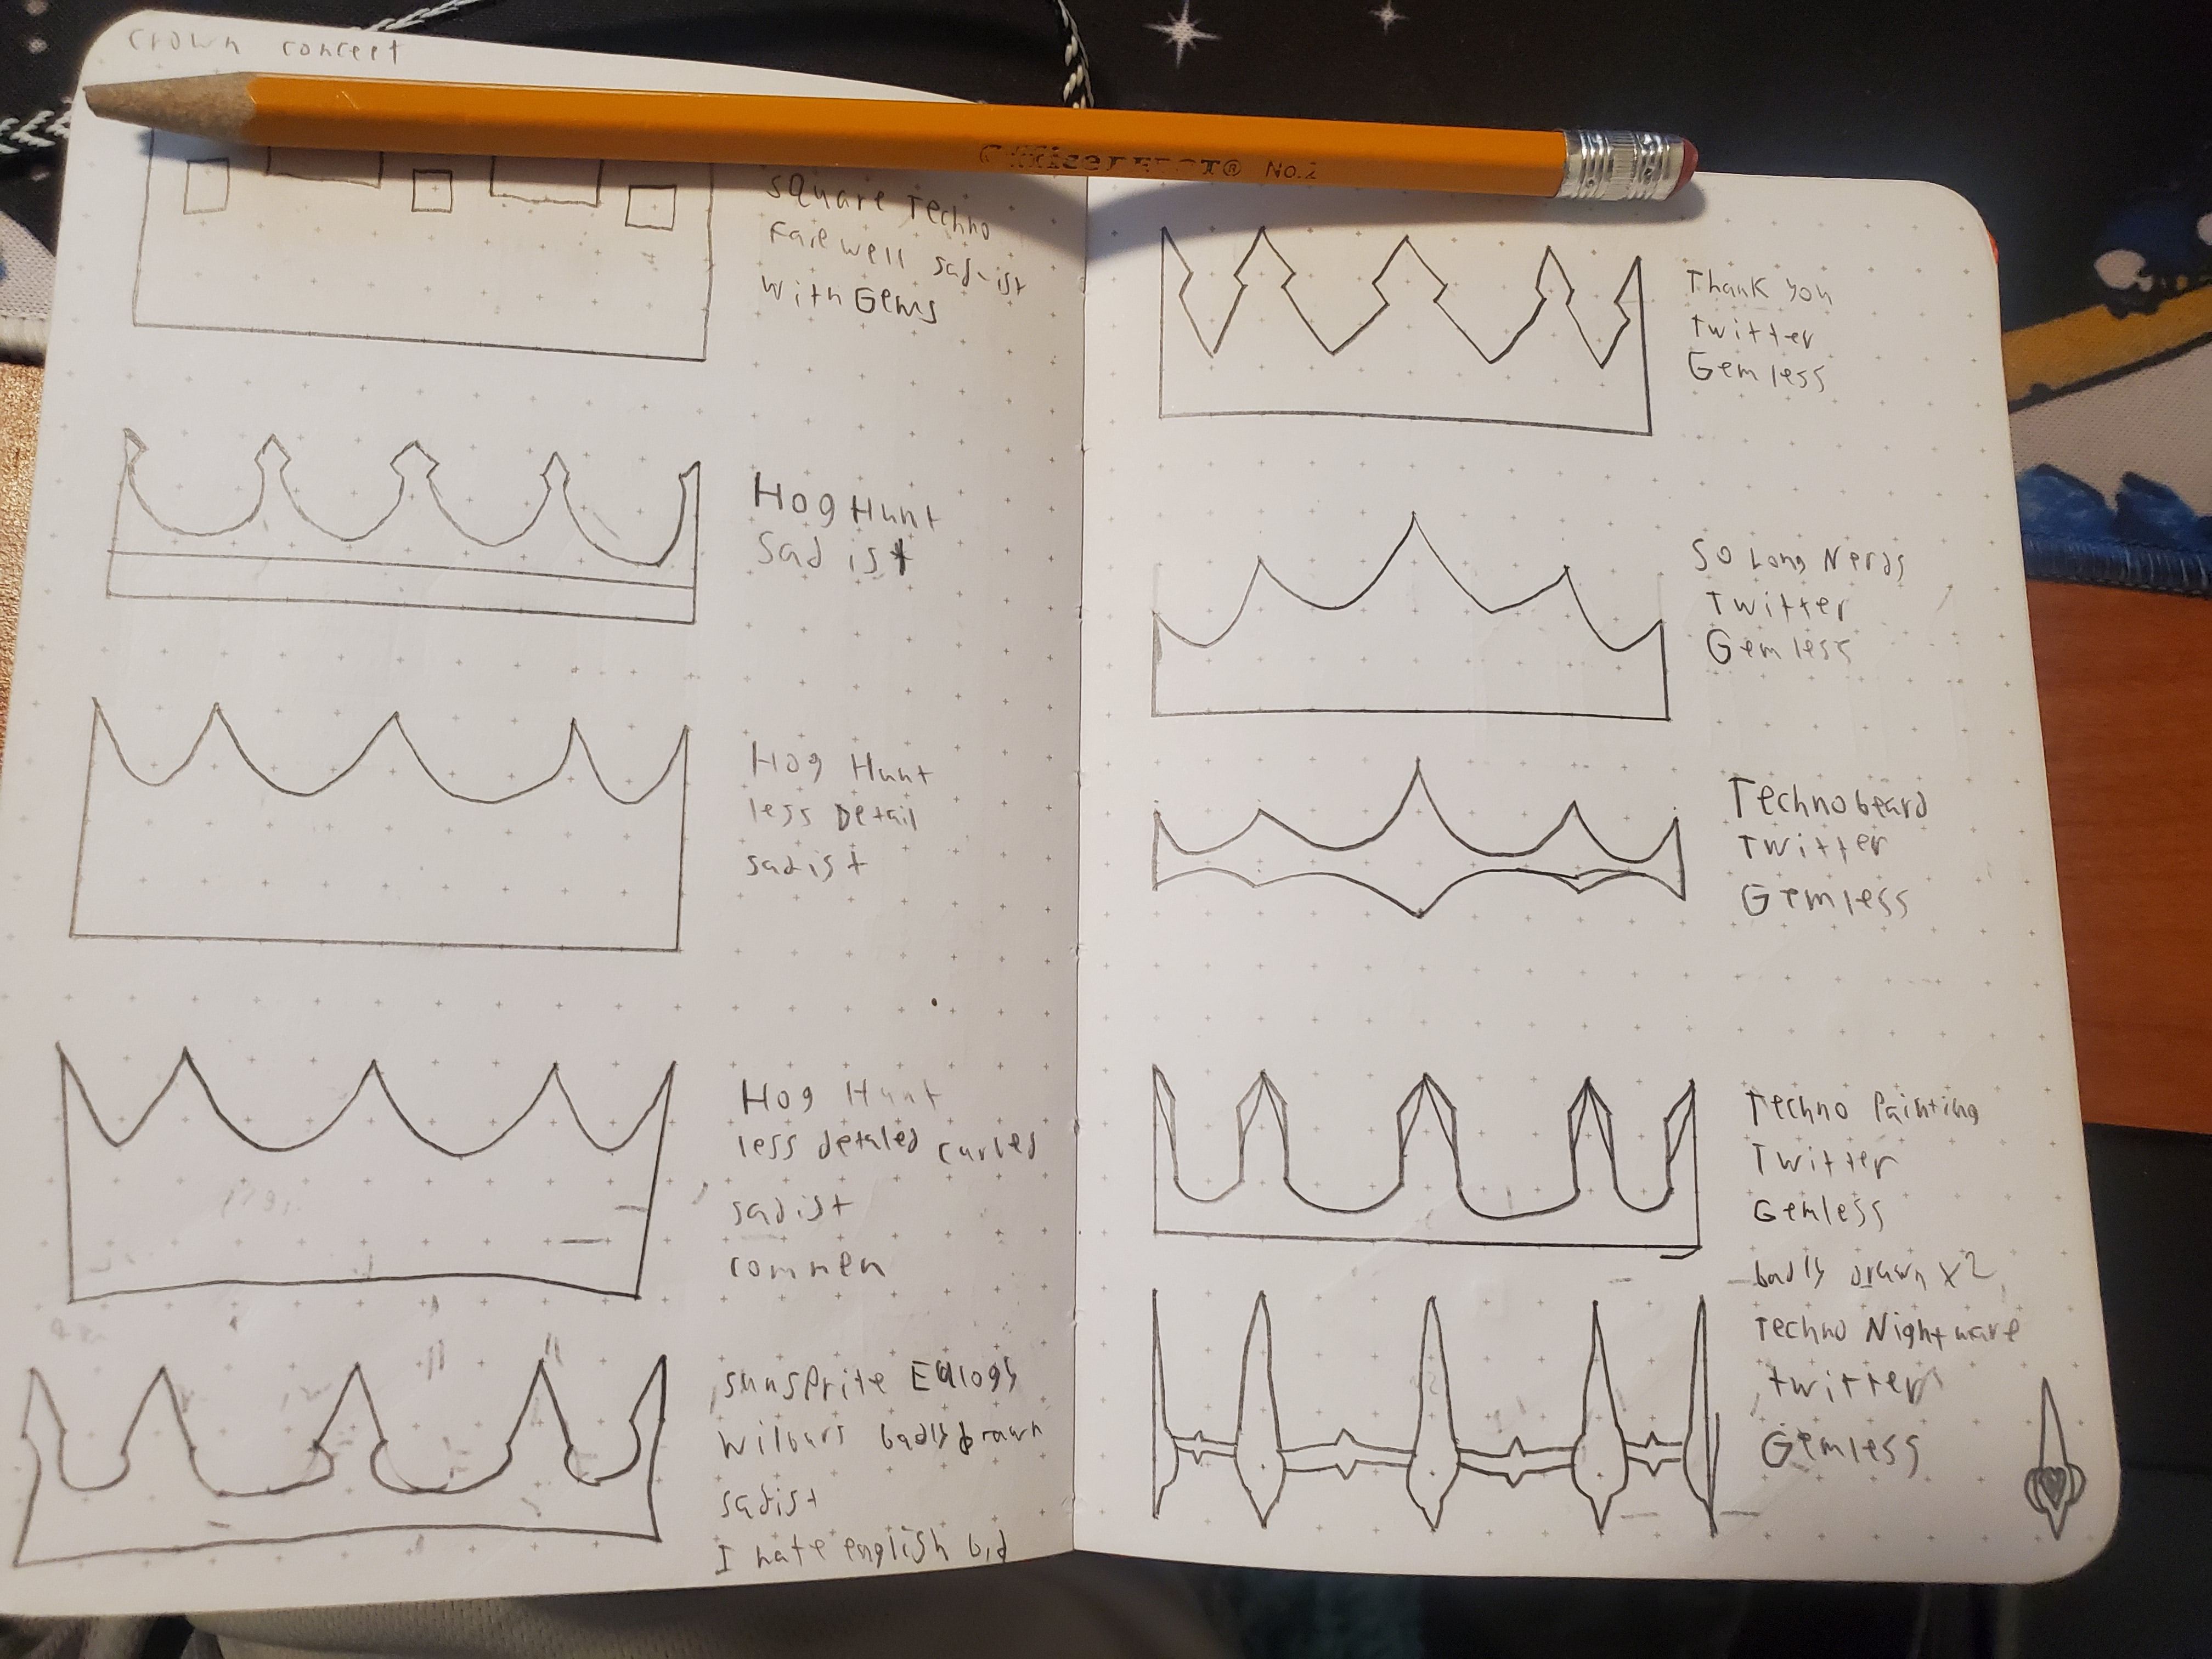 crown concept
Square Techno
Farewell sadist
with Gems
Hog Hunt
Sadist
Hog Hunt
less Detail
sadist
Hog Hunt
less detaled curves
sadist
commen
sunsprite Eulogy
wilburs badly drawn
sadist
I hate english bid
Thank you
twitter
Gemless
So Long Nerds
Twitter
Gemless
Technobeard
twitter
Gemless
Techno Painting
Twitter
Gemless
badly drawn x2
Techno Nightmare
twitter
Gemless
No.2